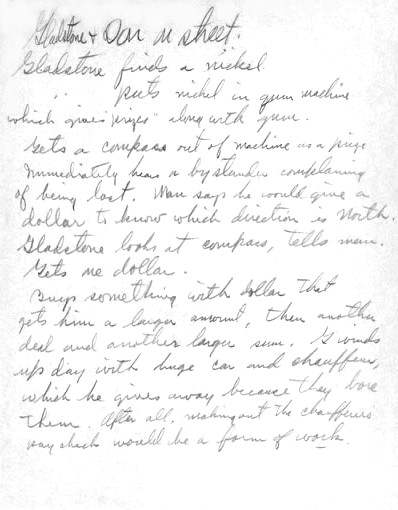 Gladstone + Dan on street.
Gladstone finds a nickel.
" puts nickel in gum machine
which gives "prizes" along with gum.
Gets a compass out of machine as a prize
Immediately hears a bystander complaining
of being lost. Man says he would give a
dollar to know which direction is North.
Gladstone looks at compass, tells man.
Gets me dollar.
Buys something with dollar that
gets him a larger amount, then another
deal and another larger sum. G winds
up day with huge car and chauffeur,
which he gives away because they bore
them. After all, making out the chauffeurs
pay check would be a form of work.